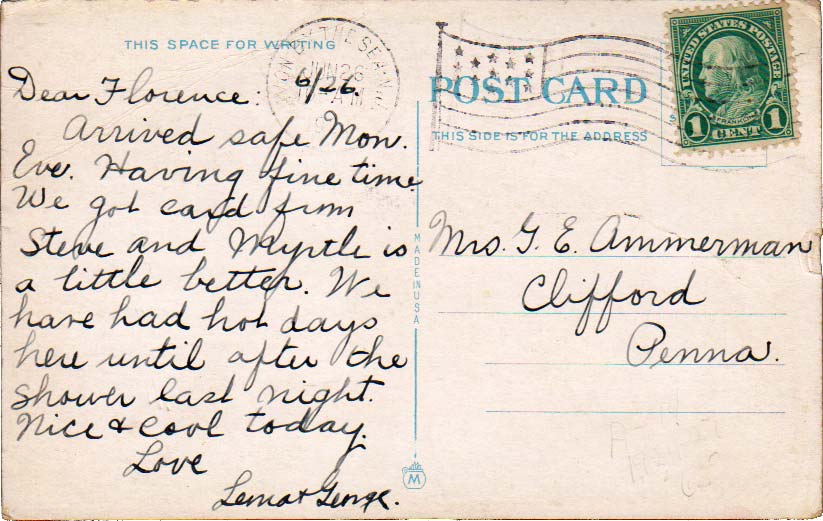 THIS SPACE FOR WRITING
Dear Florence: 6/26.
Arrived safe Mon.
Eve. Having fine time
We got card from
Steve and Myrtle is
a little better. We
have had hot days
here until after the
shower last night.
Nice & cool today.
Love
Lena & George.
BY THE SEA N.J.
JUN 26
AM
POST CARD
THIS SIDE IS FOR THE ADDRESS
UNITED STATES POSTAGE
FRANKLIN
1 CENT 1
MADE IN USA
Mrs. G. E. Ammerman
Clifford
Penna.
M